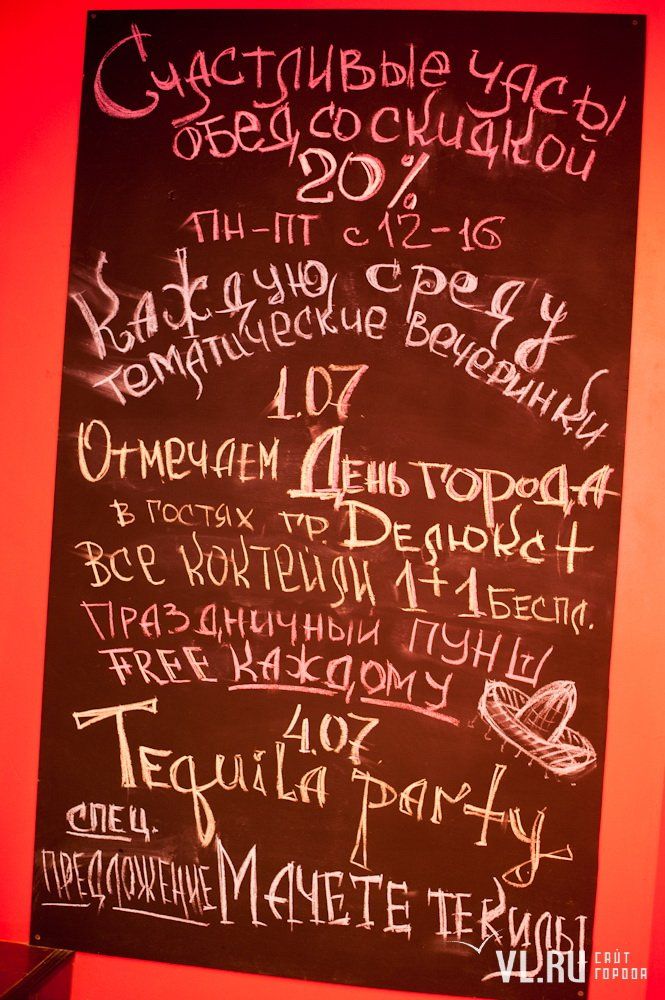 Счастливые часы
обед со скидкой
20%
ПН-ПТ с 12-16
Каждую среду
тематические вечеринки
1.07.
Отмечаем День города
в гостях гр. Делюкс+
Все коктейли 1+1 беспл.
Праздничный пунш
FREE каждому
4.07.
Tequila party
спец.
предложение Мачете текилы
VL.RU сайт
города